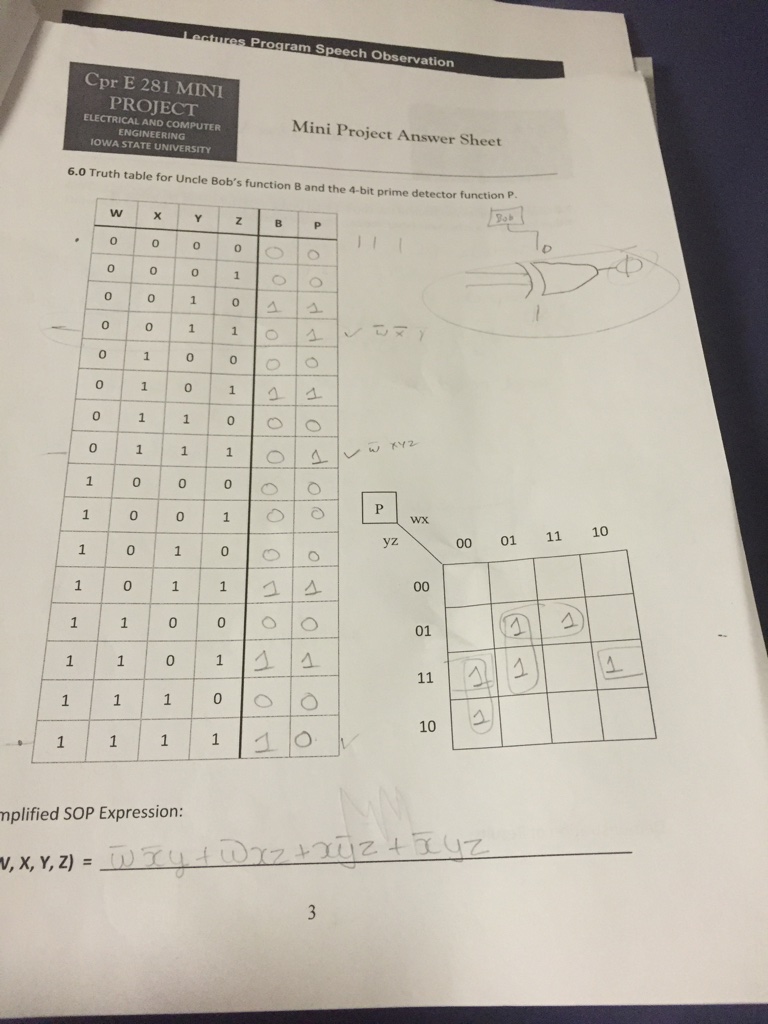 Lectures Program Speech Observation
Cpr E 281 MINI
PROJECT
ELECTRICAL AND COMPUTER
ENGINEERING
IOWA STATE UNIVERSITY
Mini Project Answer Sheet
6.0 Truth table for Uncle Bob's function B and the 4-bit prime detector function P.
Bob
W X Y Z B P
0 0 0 0 0 0
0 0 0 1 0 0
0 0 1 0 1 1
0 0 1 1 0 1 ✓ w̅ x̅ y
0 1 0 0 0 0
0 1 0 1 1 1
0 1 1 0 0 0
0 1 1 1 0 1 ✓ w̅ xyz
1 0 0 0 0 0
1 0 0 1 0 0
1 0 1 0 0 0
1 0 1 1 1 1
1 1 0 0 0 0
1 1 0 1 1 1
1 1 1 0 0 0
1 1 1 1 1 0 ✓
P
wx
yz
00 01 11 10
00
01 1 1
11 1 1 1
10 1
mplified SOP Expression:
W, X, Y, Z) = w̅x̅y + w̅xz + xy̅z + x̅yz
3